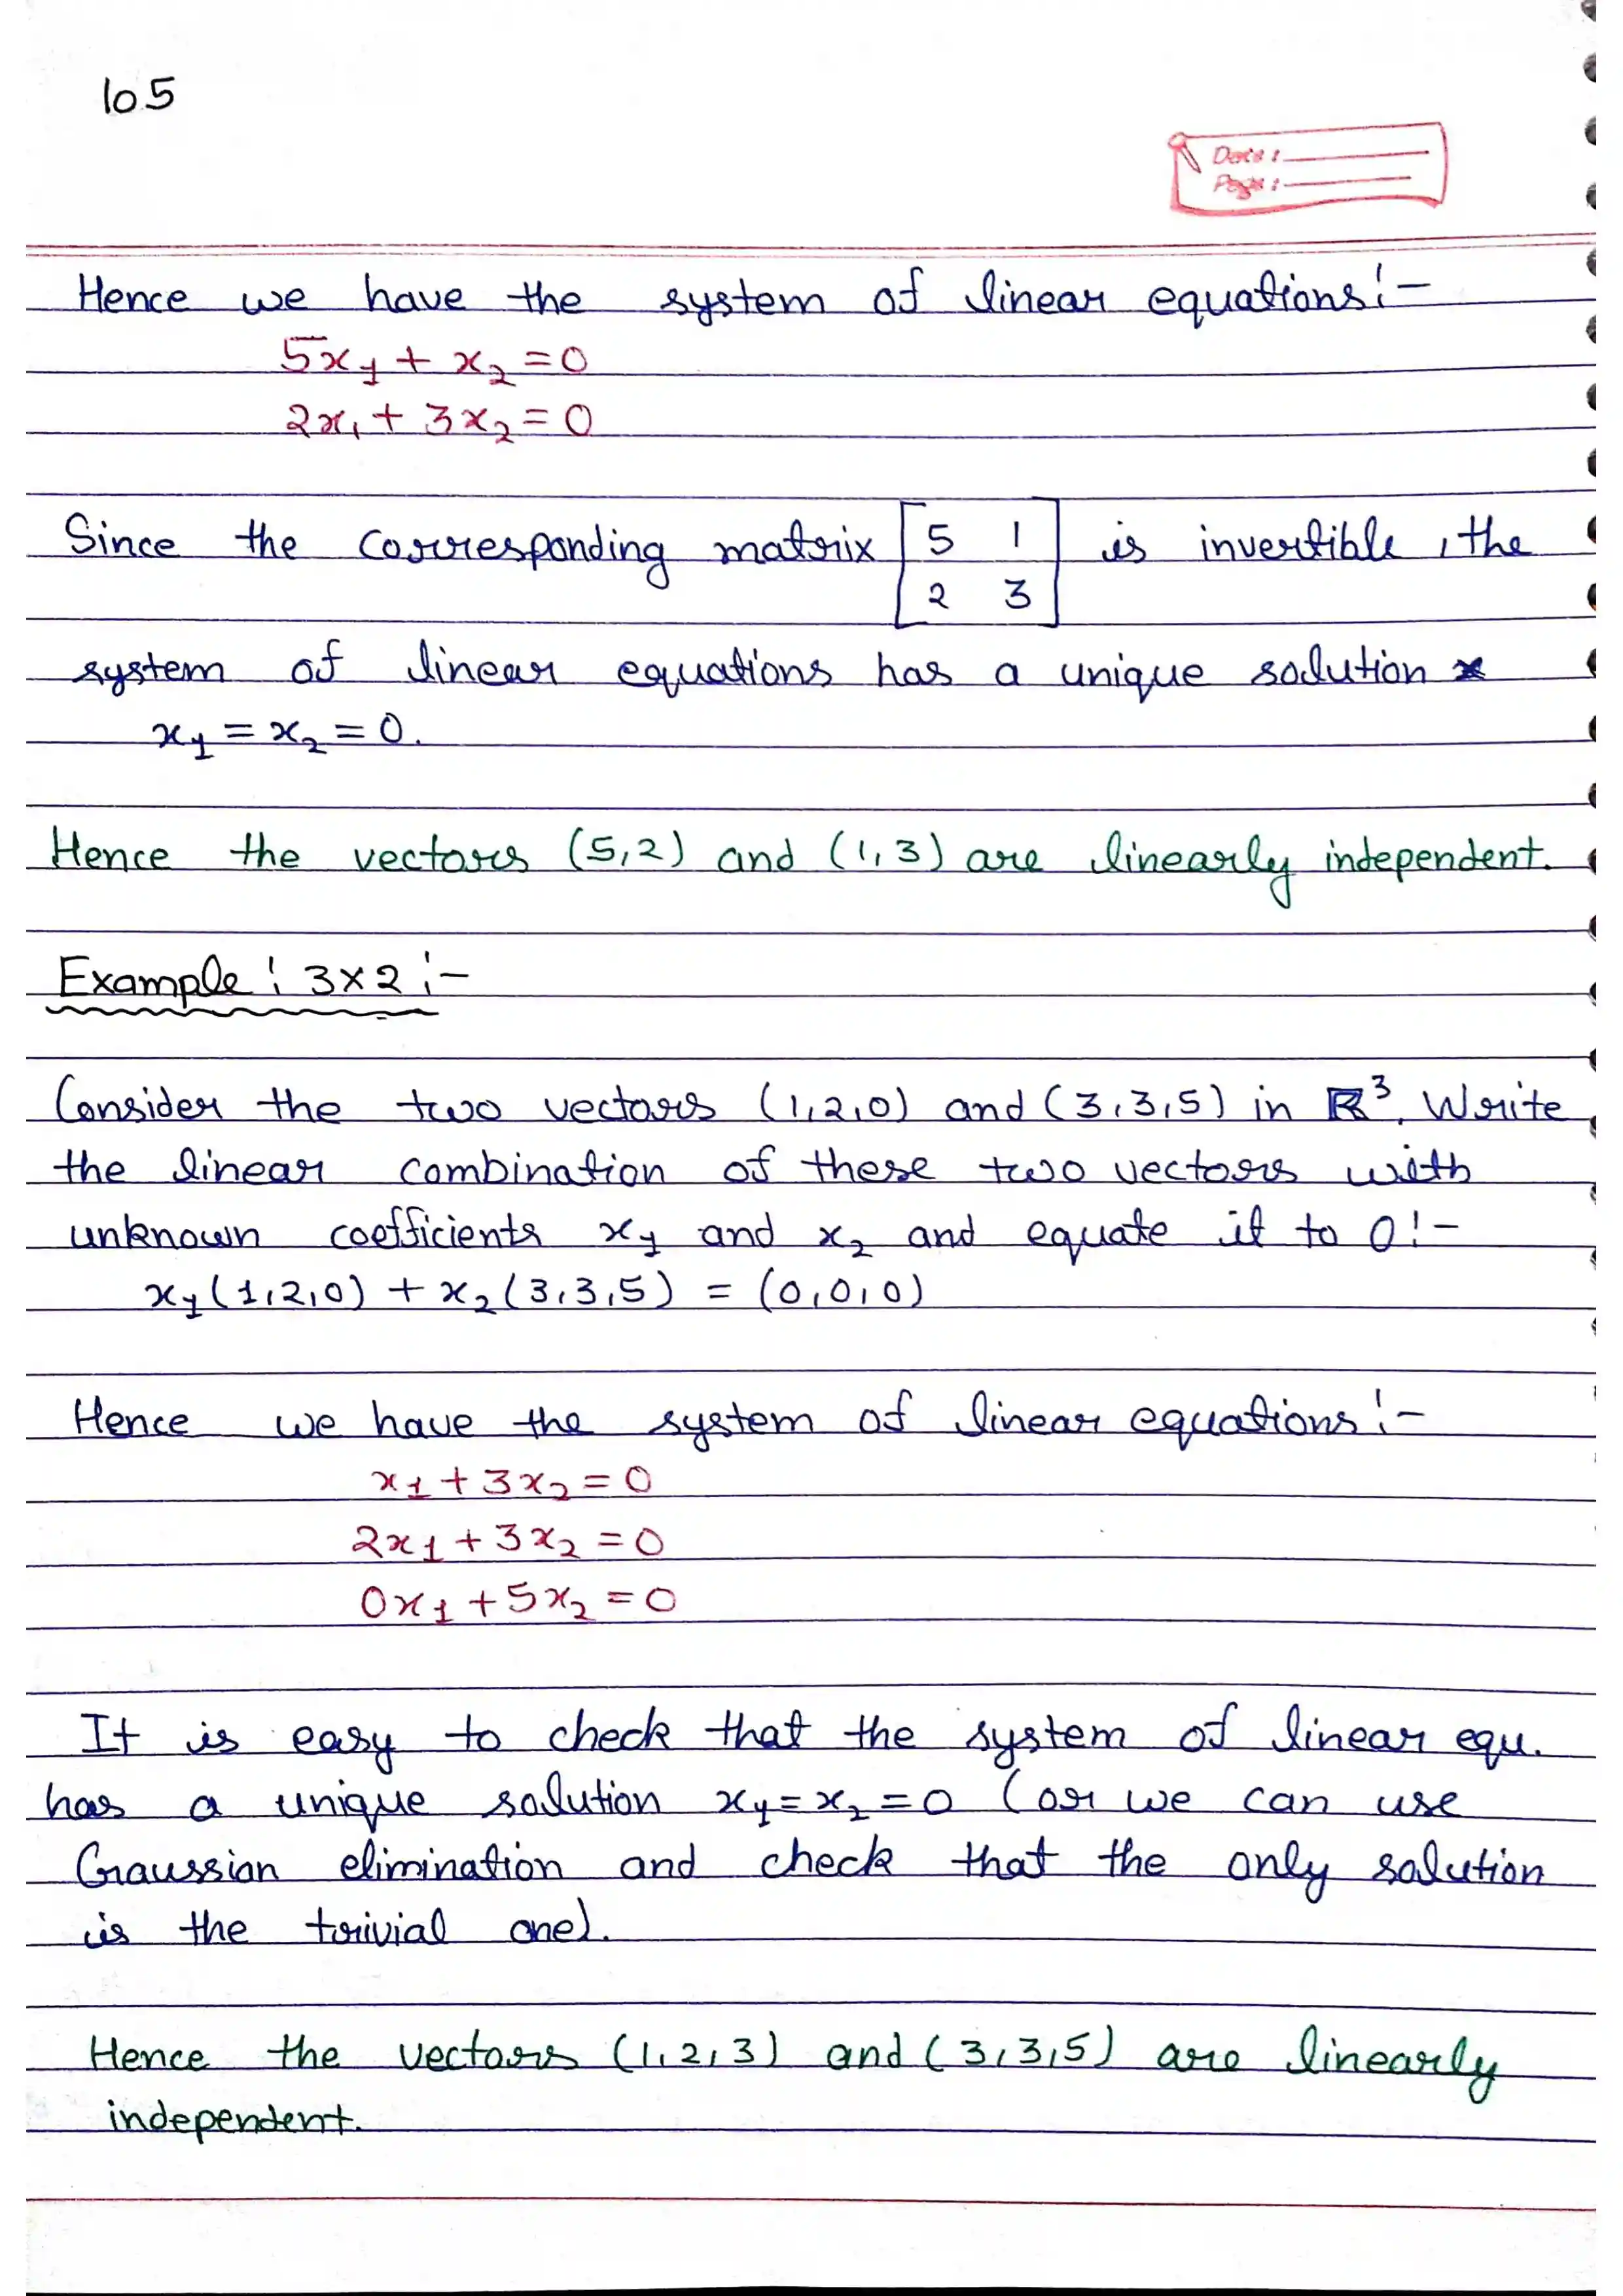 105
Date:
Page:
Hence we have the system of linear equations:-
5x₁ + x₂ = 0
2x₁ + 3x₂ = 0
Since the corresponding matrix [5 1] is invertible, the
[2 3]
system of linear equations has a unique solution
x₁ = x₂ = 0.
Hence the vectors (5,2) and (1,3) are linearly independent.
Example: 3×2:-
Consider the two vectors (1,2,0) and (3,3,5) in ℝ³. Write
the linear combination of these two vectors with
unknown coefficients x₁ and x₂ and equate it to 0:-
x₁(1,2,0) + x₂(3,3,5) = (0,0,0)
Hence we have the system of linear equations:-
x₁ + 3x₂ = 0
2x₁ + 3x₂ = 0
0x₁ + 5x₂ = 0
It is easy to check that the system of linear equ.
has a unique solution x₁ = x₂ = 0 (or we can use
Gaussian elimination and check that the only solution
is the trivial one).
Hence the vectors (1,2,3) and (3,3,5) are linearly
independent.